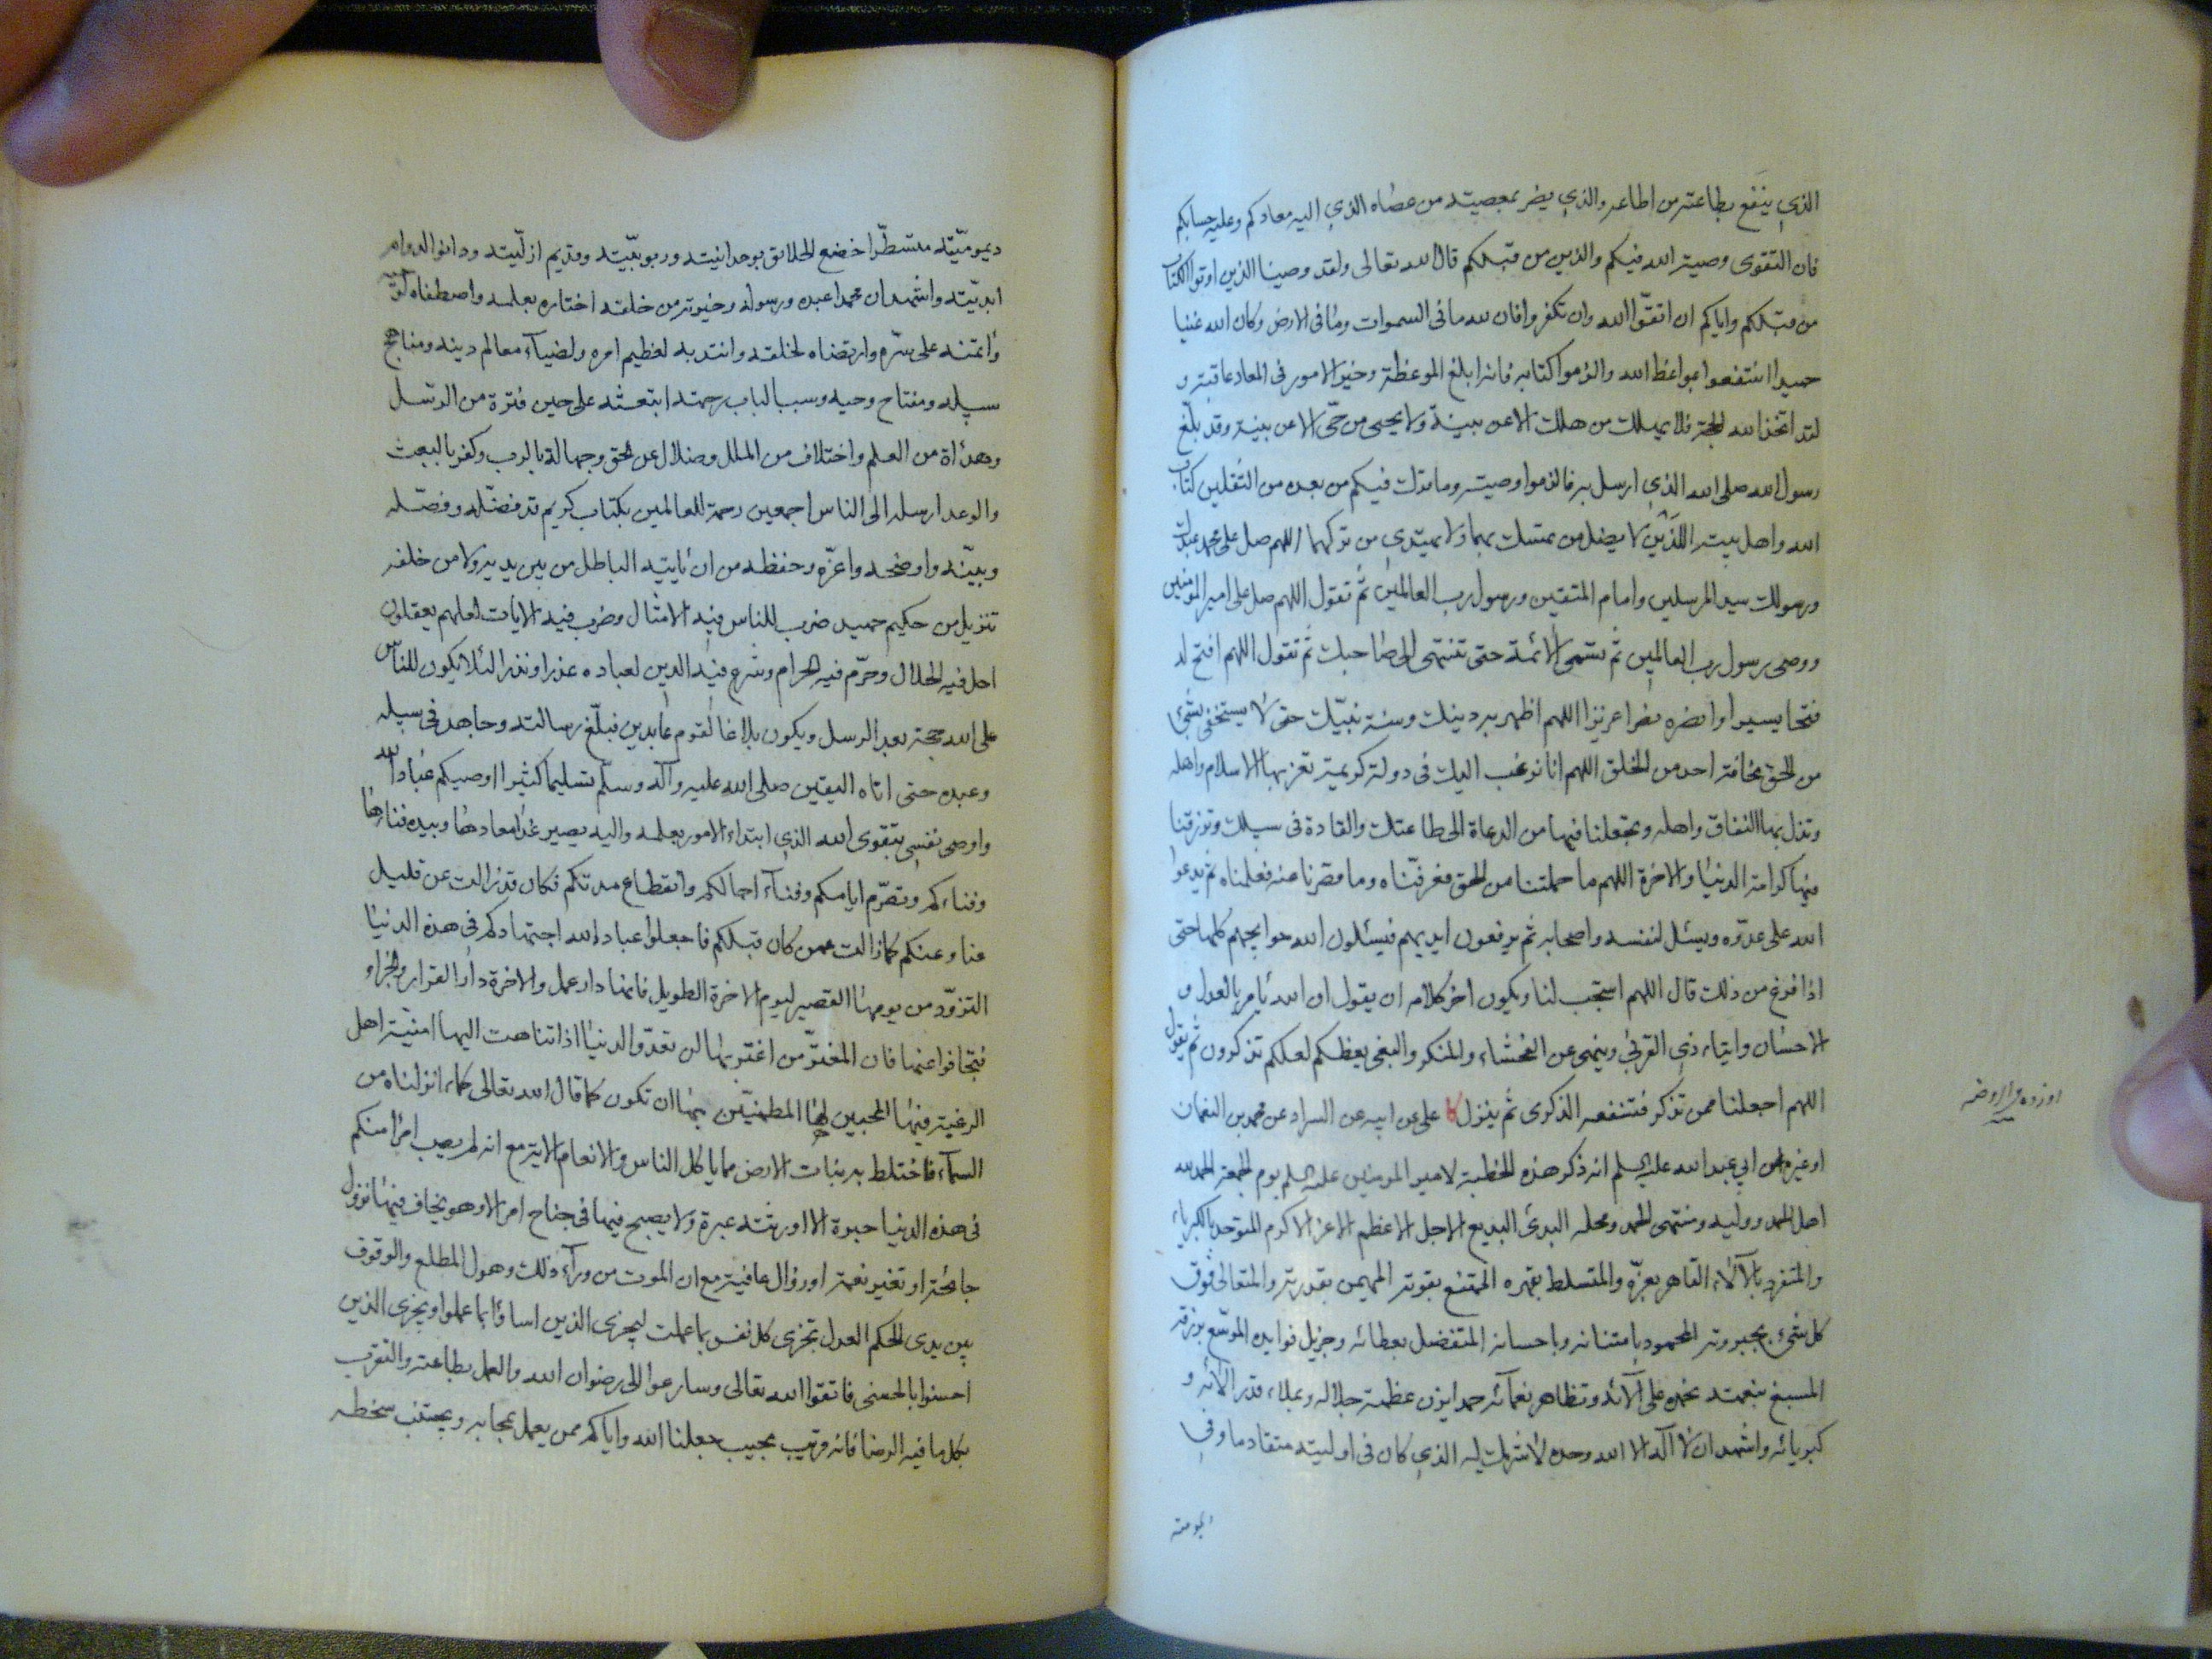 الذي ينفع بطاعته من اطاعه والذي يضر بمعصيته من عصاه الذي اليه معادكم وعليه حسابكم
فان التقوى وصية الله فيكم والذين من قبلكم قال الله تعالى ولقد وصينا الذين اوتوا الكتاب
من قبلكم واياكم ان اتقوا الله وان تكفروا فان لله ما في السموات وما في الارض وكان الله غنيا
حميدا انتفعوا بمواعظ الله والزموا كتابه فانه ابلغ الموعظة وخير الامور في المعاد عاقبة و
لقد اتخذ الله الحجة فلا يهلك من هلك الا عن بينة ولا يحيى من حي الا عن بينة وقد بلغ
رسول الله صلى الله الذي ارسل به فالزموا وصيته وما ترك فيكم من بعده من الثقلين كتاب
الله واهل بيته اللذين لا يضل من تمسك بهما ولا يهتدي من تركهما اللهم صل على محمد عبدك
ورسولك سيد المرسلين وامام المتقين ورسول رب العالمين ثم تقول اللهم صل على امير المؤمنين
ووصي رسول رب العالمين ثم تسمى الائمة حتى تنتهى الى صاحبك ثم تقول اللهم افتح له
فتحا يسيرا وانصره نصرا عزيزا اللهم اظهر به دينك وسنة نبيك حتى لا يستخفى بشئ
من الحق مخافة احد من الخلق اللهم انا نرغب اليك في دولة كريمة تعز بها الاسلام واهله
وتذل بها النفاق واهله وتجعلنا فيها من الدعاة الى طاعتك والقادة فى سبيلك وترزقنا
فيها كرامة الدنيا والاخرة اللهم ما حملتنا من الحق فعرفناه وما قصرنا عنه فعلمناه ثم يدعوا
الله على عدوه ويسئل لنفسه واصحابه ثم يرفعون ايديهم فيسئلون الله حوايجهم كلها حتى
اذا فرغ من ذلك قال اللهم استجب لنا ويكون اخر كلامه ان يقول ان الله يأمر بالعدل و
الاحسان وايتاء ذي القربى وينهى عن الفحشاء والمنكر والبغي يعظكم لعلكم تذكرون ثم يقول
اللهم اجعلنا ممن تذكر فتنفعه الذكرى ثم ينزل كا علي عن ابيه عن السراد عن محمد بن النعمان
او غيره عن ابي عبد الله عليه السلم انه ذكر هذه الخطبة لامير المومنين عليه السلم يوم الجمعة الحمد لله
اهل الحمد ووليه ومنتهى الحمد ومحله البدئ البديع الاجل الاعظم الاعز الاكرم المتوحد بالكبرياء
والمتفرد بالآلاء القاهر بعزه والمتسلط بقهره الممتنع بقوته المهيمن بقدرته والمتعالى فوق
كل شئ بجبروته المحمود بامتنانه وباحسانه المتفضل بعطائه وجزيل فوايده الموسع برزقه
المسبغ بنعمته نحمده على آلائه وتظاهر نعمائه حمدا يزن عظمة جلاله ويملاء قدر آلائه و
كبريائه واشهد ان لا اله الا الله وحده لا شريك له الذي كان في اوليته متقادما وفي
ديموميته
ديموميته متسطرا خضع الخلائق بوحدانيته وربوبيته وقديم ازليته ودانوا لدوام
ابديته واشهد ان محمدا عبده ورسوله وخيرته من خلقه اختاره بعلمه واصطفاه لوحيه
وائتمنه على سره وارتضاه لخلقه وانتدبه لعظيم امره ولضياء معالم دينه ومناهج
سبيله ومفتاح وحيه وسببا لباب رحمته ابتعثه على حين فترة من الرسل
وهدأة من العلم واختلاف من الملل وضلال عن الحق وجهالة بالرب وكفر بالبعث
والوعد ارسله الى الناس اجمعين رحمة للعالمين بكتاب كريم قد فضله وفصله
وبينه واوضحه واعزه وحفظه من ان ياتيه الباطل من بين يديه ولا من خلفه
تنزيل من حكيم حميد ضرب للناس فيه الامثال وضرب فيه الايات لعلهم يعقلون
احل فيه الحلال وحرم فيه الحرام وشرع فيه الدين لعباده عذرا ونذرا لئلا يكون للناس
على الله حجة بعد الرسل ويكون بلاغا لقوم عابدين فبلغ رسالته وجاهد في سبيله
وعبده حتى اتاه اليقين صلى الله عليه وآله وسلم تسليما كثيرا اوصيكم عباد الله
واوصى نفسي بتقوى الله الذي ابتداء الامور بعلمه واليه يصير غدا معادها وبيده فناؤها
وفناءكم وتصرم ايامكم وفناء اجالكم وانقطاع مدتكم فكان قد زالت عن قليل
عنا وعنكم كما زالت عمن كان قبلكم فاجعلوا عباد الله اجتهادكم في هذه الدنيا
التزود من يومها القصير ليوم الاخرة الطويل فانها دار عمل والاخرة دار القرار والجزاء
فتجافوا عنها فان المغتر من اغتر بها لن تعدو الدنيا اذا تناهت اليها امنية اهل
الرغبة فيها المحبين لها المطمئنين بها ان تكون كما قال الله تعالى كماء انزلناه من
السماء فاختلط به نبات الارض مما ياكل الناس والانعام الاية مع انه لم يصب امرأ منكم
فى هذه الدنيا حبرة الا اورثته عبرة ولا يصبح فيها في جناح امن الا وهو يخاف فيها نزول
جائحة او تغير نعمة او زوال عافية مع ان الموت من وراء ذلك وهول المطلع والوقوف
بين يدي الحكم العدل تجزى كل نفس بما عملت ليجزى الذين اساؤا بما عملوا ويجزى الذين
احسنوا بالحسنى فاتقوا الله تعالى وسارعوا الى رضوان الله والعمل بطاعته والتقرب
بكل ما فيه الرضا فانه قريب مجيب جعلنا الله واياكم ممن يعمل بمحابه ويجتنب سخطه